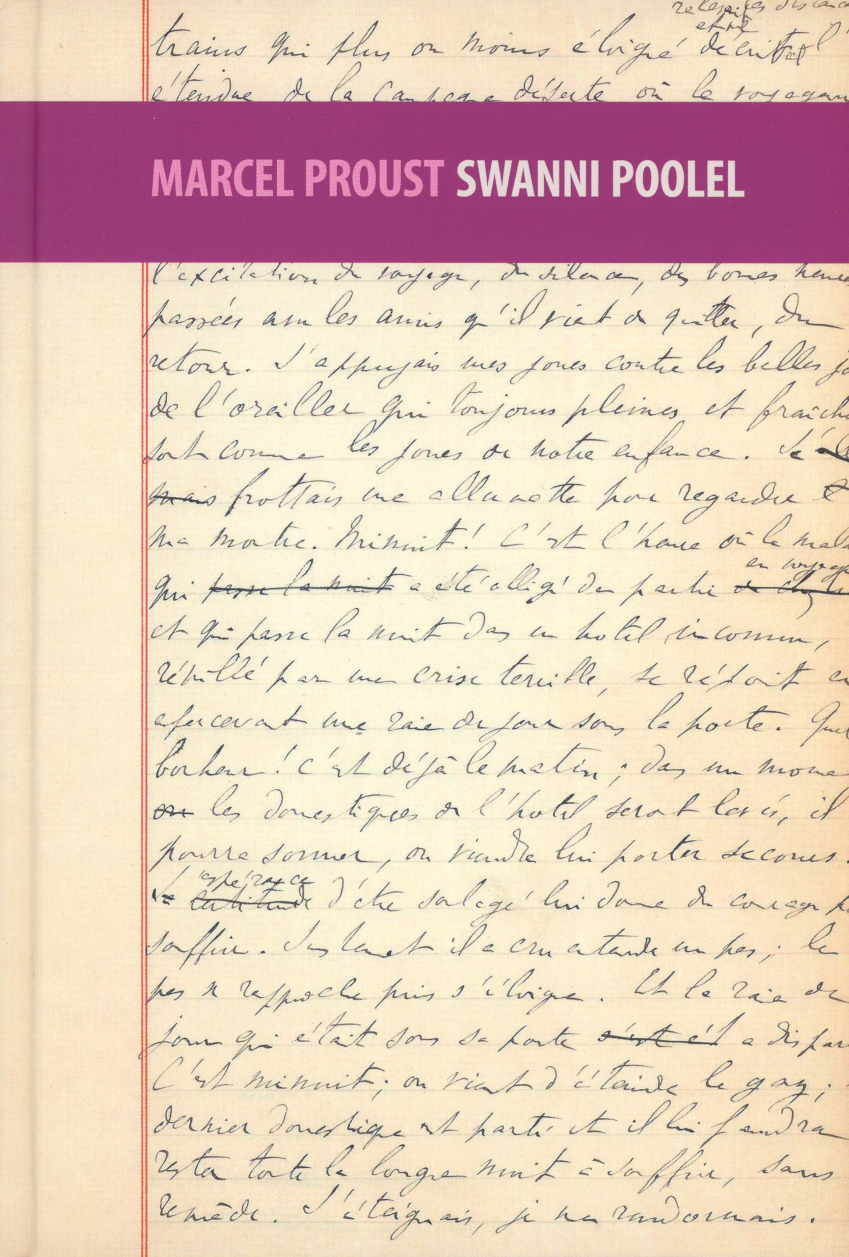 relesait les distances
et me
trains qui plus ou moins éloigné décrivait l'
étendue de la campagne déserte où le voyageur
MARCEL PROUST SWANNI POOLEL
l'excitation du voyage, du silence, des bonnes heures
passées avec les amis qu'il vient de quitter, du
retour. J'appuyais mes joues contre les belles jo
de l'oreiller qui toujours pleines et fraîche
sont comme les joues de notre enfance. Je
mais frottais une allumette pour regarder
ma montre. Minuit! C'est l'heure où le mala
en voyage
qui passe la nuit a été obligé de partir
et qui passe la nuit dans un hotel inconnu,
réveillé par une crise terrible, se réjouit en
apercevant une raie de jour sous la porte. Quel
bonheur! c'est déjà le matin; dans un mome
ou les domestiques de l'hotel seront levés, il
pourra sonner, on viendra lui porter secours.
espérance
certitude d'être soulagé lui donne du courage p
souffrir. Justement il a cru entendre un pas; le
pas se rapproche puis s'éloigne. Et la raie de
jour qui était sous sa porte s'est é a dispar
C'est minuit; on vient d'éteindre le gaz;
dernier domestique est parti et il lui faudra
rester toute la longue nuit à souffrir, sans
remède. J'éteignais, je me rendormais.